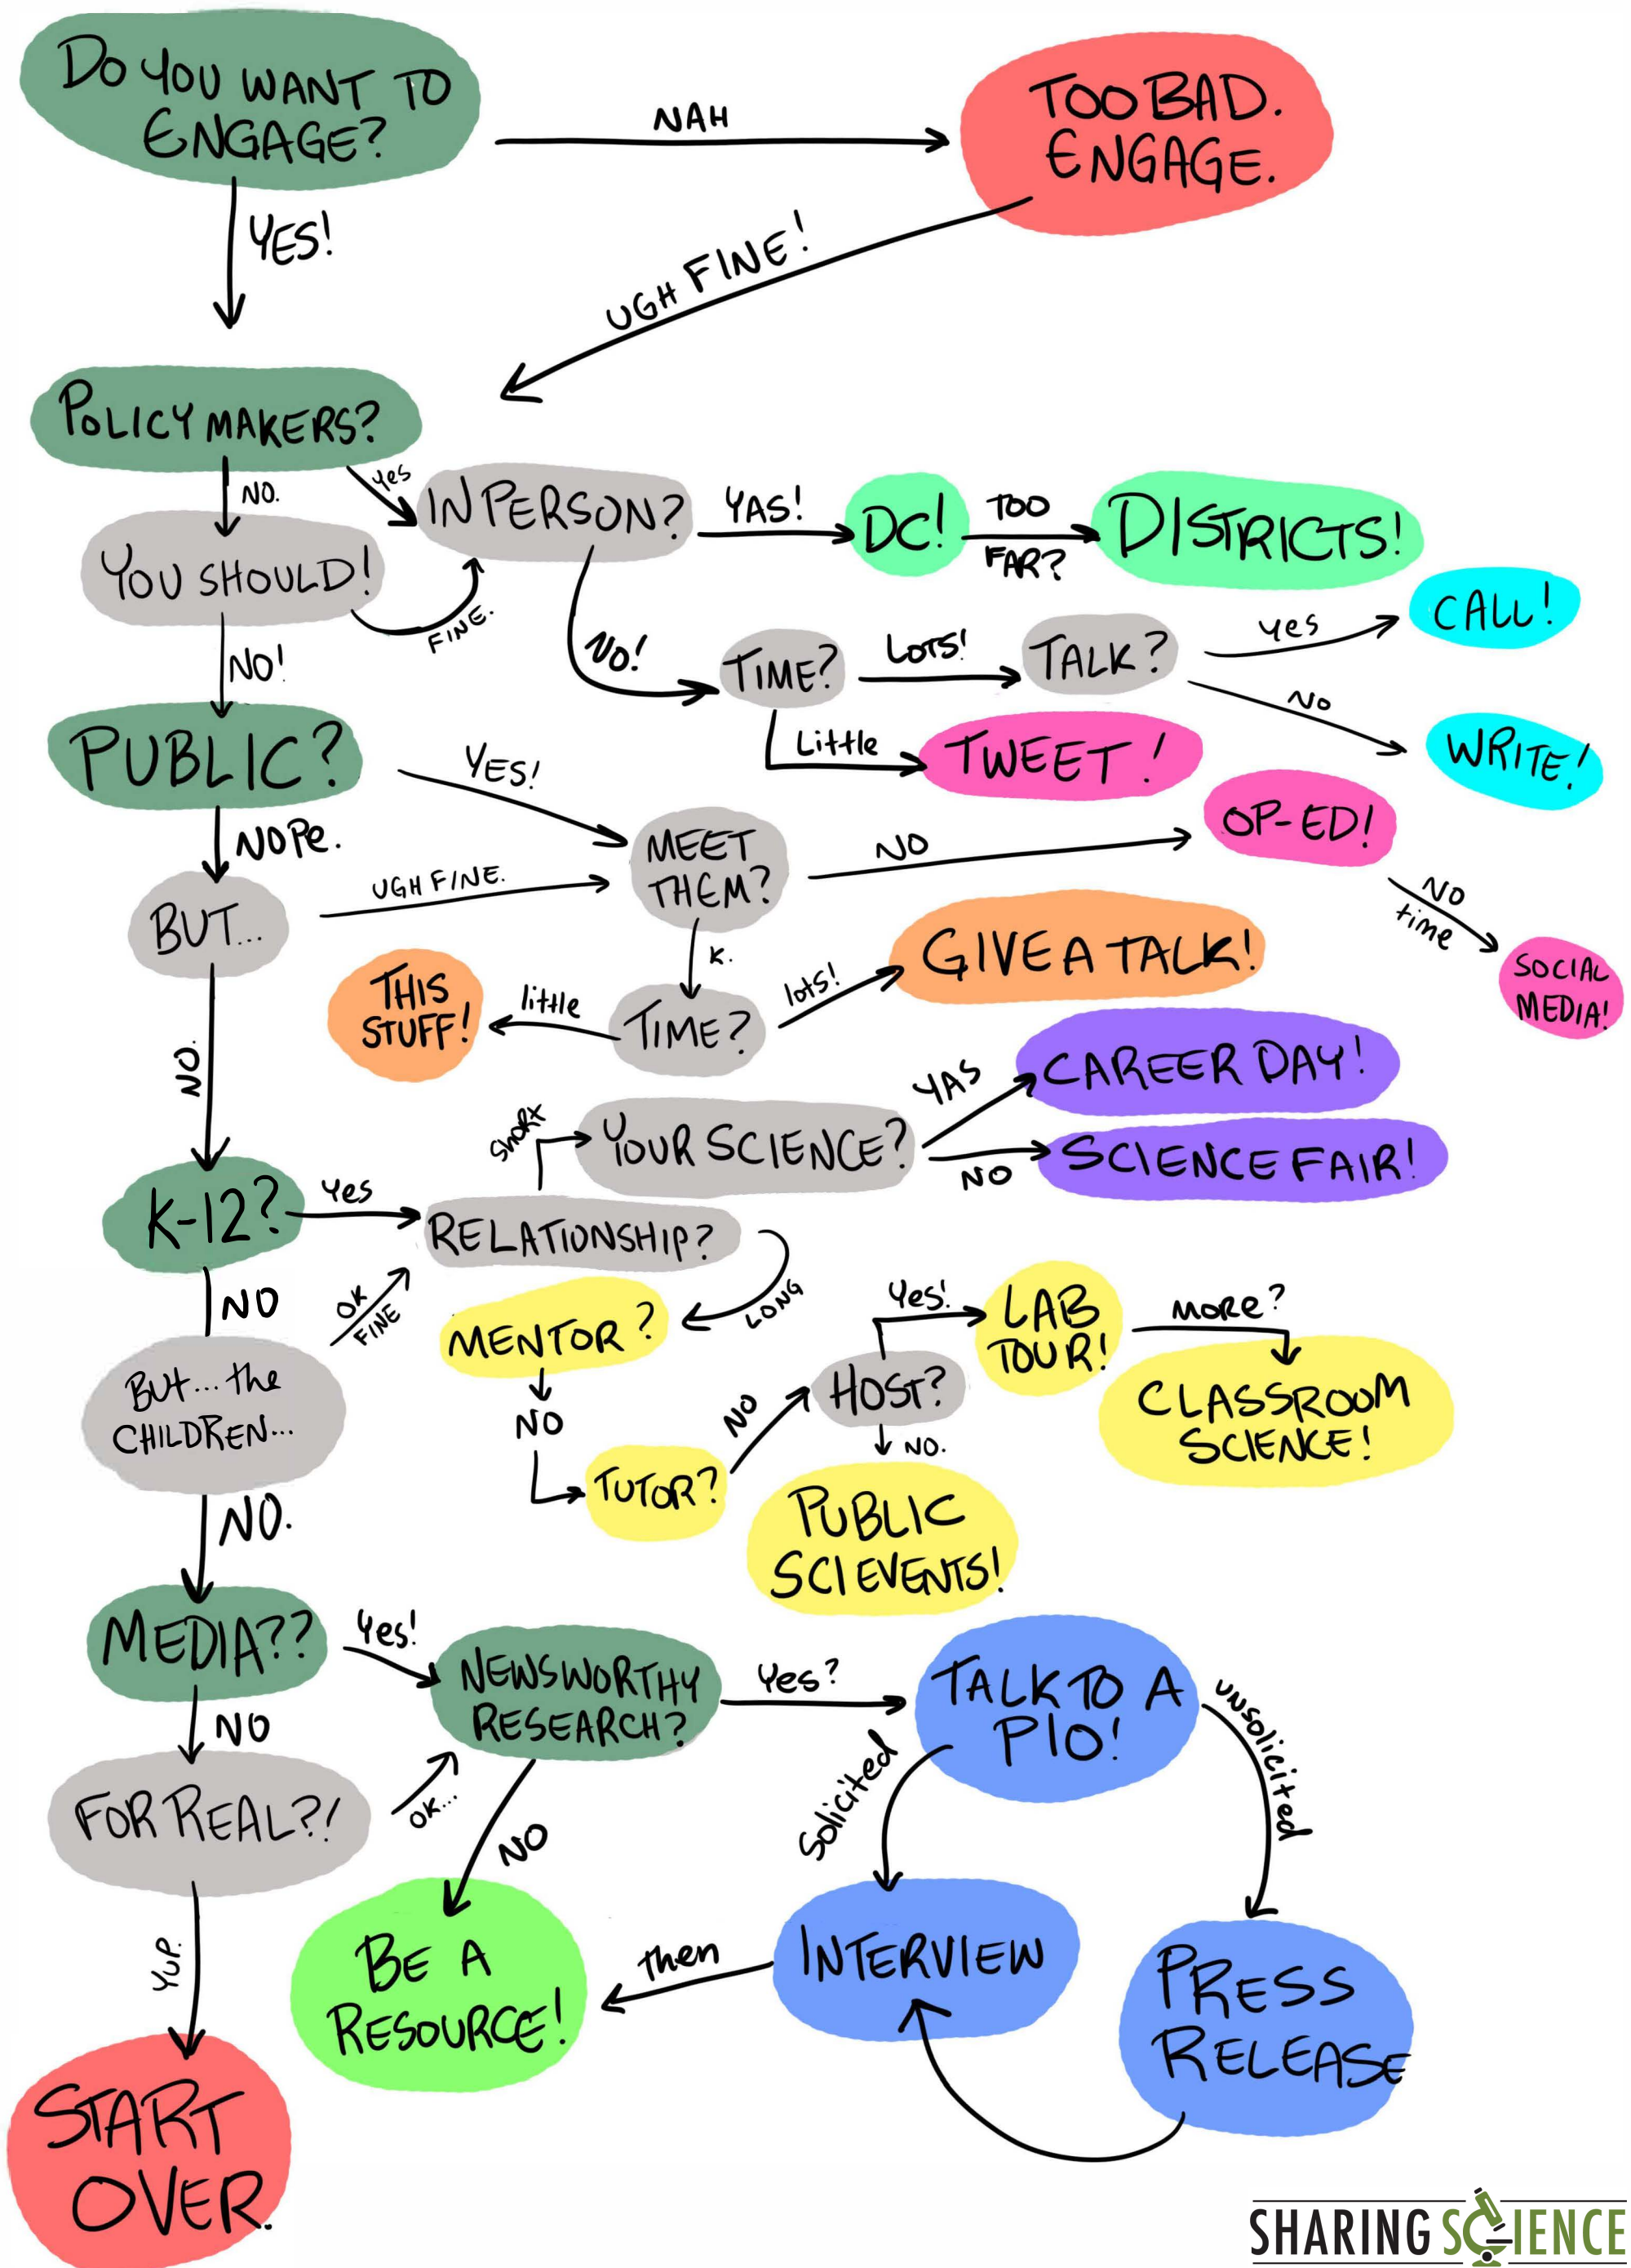 DO YOU WANT TO
ENGAGE?
NAH
TOO BAD.
ENGAGE.
YES!
UGH FINE!
POLICY MAKERS?
NO.
Yes
IN PERSON?
YAS!
DC!
TOO
FAR?
DISTRICTS!
YOU SHOULD!
FINE.
NO!
NO!
TIME?
LOTS!
TALK?
Yes
CALL!
NO
WRITE!
Little
TWEET!
PUBLIC?
YES!
NOPe.
MEET
THEM?
NO
OP-ED!
NO
time
SOCIAL
MEDIA!
BUT...
UGH FINE.
K.
TIME?
lots!
GIVE A TALK!
little
THIS
STUFF!
NO.
K-12?
Yes
RELATIONSHIP?
SHORT
YOUR SCIENCE?
YAS
CAREER DAY!
NO
SCIENCE FAIR!
NO
OK
FINE
LONG
MENTOR?
NO
TUTOR?
NO
HOST?
Yes!
LAB
TOUR!
MORE?
CLASSROOM
SCIENCE!
NO.
PUBLIC
SCI EVENTS!
BUT... the
CHILDREN...
NO.
MEDIA??
Yes!
NEWSWORTHY
RESEARCH?
Yes?
TALK TO A
PIO!
UNSolicited
Solicited
NO
FOR REAL?!
OK...
NO
BE A
RESOURCE!
then
INTERVIEW
PRESS
RELEASE
YUP.
START
OVER.
SHARING SCIENCE